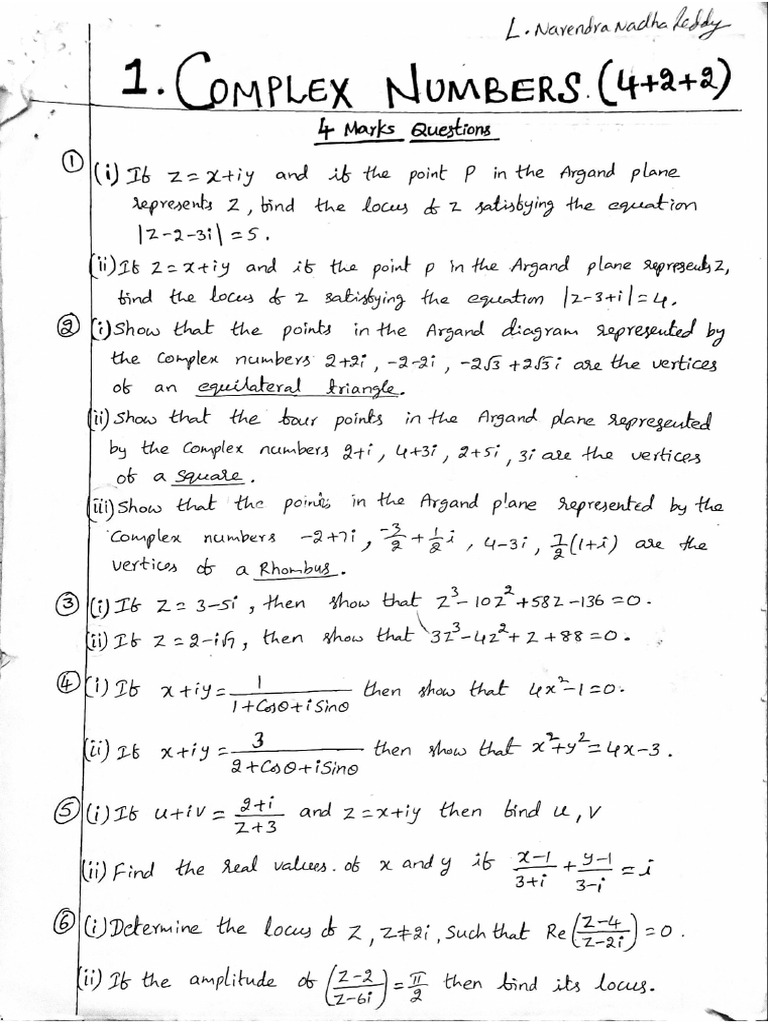 L. Narendranadha Reddy
1. COMPLEX NUMBERS. (4+2+2)
4 Marks Questions
① (i) If z = x+iy and if the point P in the Argand plane
represents z, find the locus of z satisfying the equation
|z-2-3i| = 5.
(ii) If z = x+iy and if the point p in the Argand plane represents z,
find the locus of z satisfying the equation |z-3+i| = 4.
② (i) Show that the points in the Argand diagram represented by
the complex numbers 2+2i, -2-2i, -2√3+2√3i are the vertices
of an equilateral triangle.
(ii) Show that the four points in the Argand plane represented
by the complex numbers 2+i, 4+3i, 2+5i, 3i are the vertices
of a square.
(iii) Show that the points in the Argand plane represented by the
Complex numbers -2+7i, -3/2 + 1/2 i, 4-3i, 7/2 (1+i) are the
vertices of a Rhombus.
③ (i) If z = 3-5i, then show that z³-10z²+58z-136=0.
(ii) If z = 2-i√7, then show that 3z³-4z²+z+88=0.
④ (i) If x+iy = 1/(1+Cosθ+iSinθ) then show that 4x²-1=0.
(ii) If x+iy = 3/(2+Cosθ+iSinθ) then show that x²+y²=4x-3.
⑤ (i) If u+iv = (2+i)/(z+3) and z=x+iy then find u, v
(ii) Find the real values. of x and y if (x-1)/(3+i) + (y-1)/(3-i) = i
⑥ (i) Determine the locus of z, z≠2i, such that Re((z-4)/(z-2i)) = 0.
(ii) If the amplitude of ((z-2)/(z-6i)) = π/2 then find its locus.